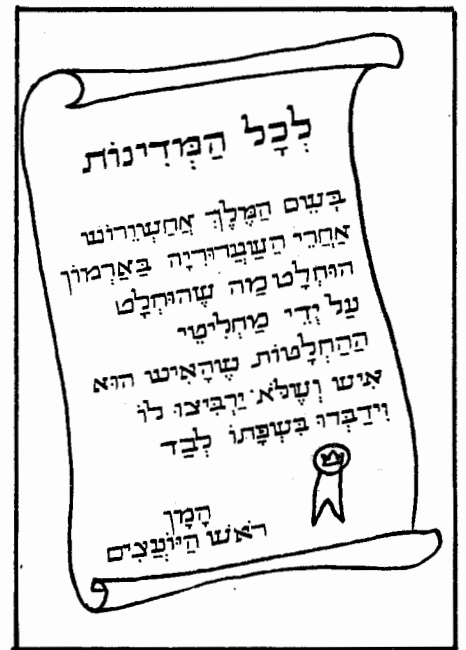 לְכָל הַמְּדִינוֹת
בְּשֵׁם הַמֶּלֶךְ אֲחַשְׁוֵרוֹשׁ
אַחֲרֵי הַשַּׁעֲרוּרִיָּה בָּאַרְמוֹן
הוּחְלַט מַה שֶׁהוּחְלַט
עַל יְדֵי מַחְלִיטֵי
הַהַחְלָטוֹת שֶׁהָאִישׁ הוּא
אִישׁ וְשֶׁלֹּא יַרְבִּיצוּ לוֹ
וִידַבְּרוּ בִּשְׂפָתוֹ לְבַד
הָמָן
רֹאשׁ הַיּוֹעֲצִים